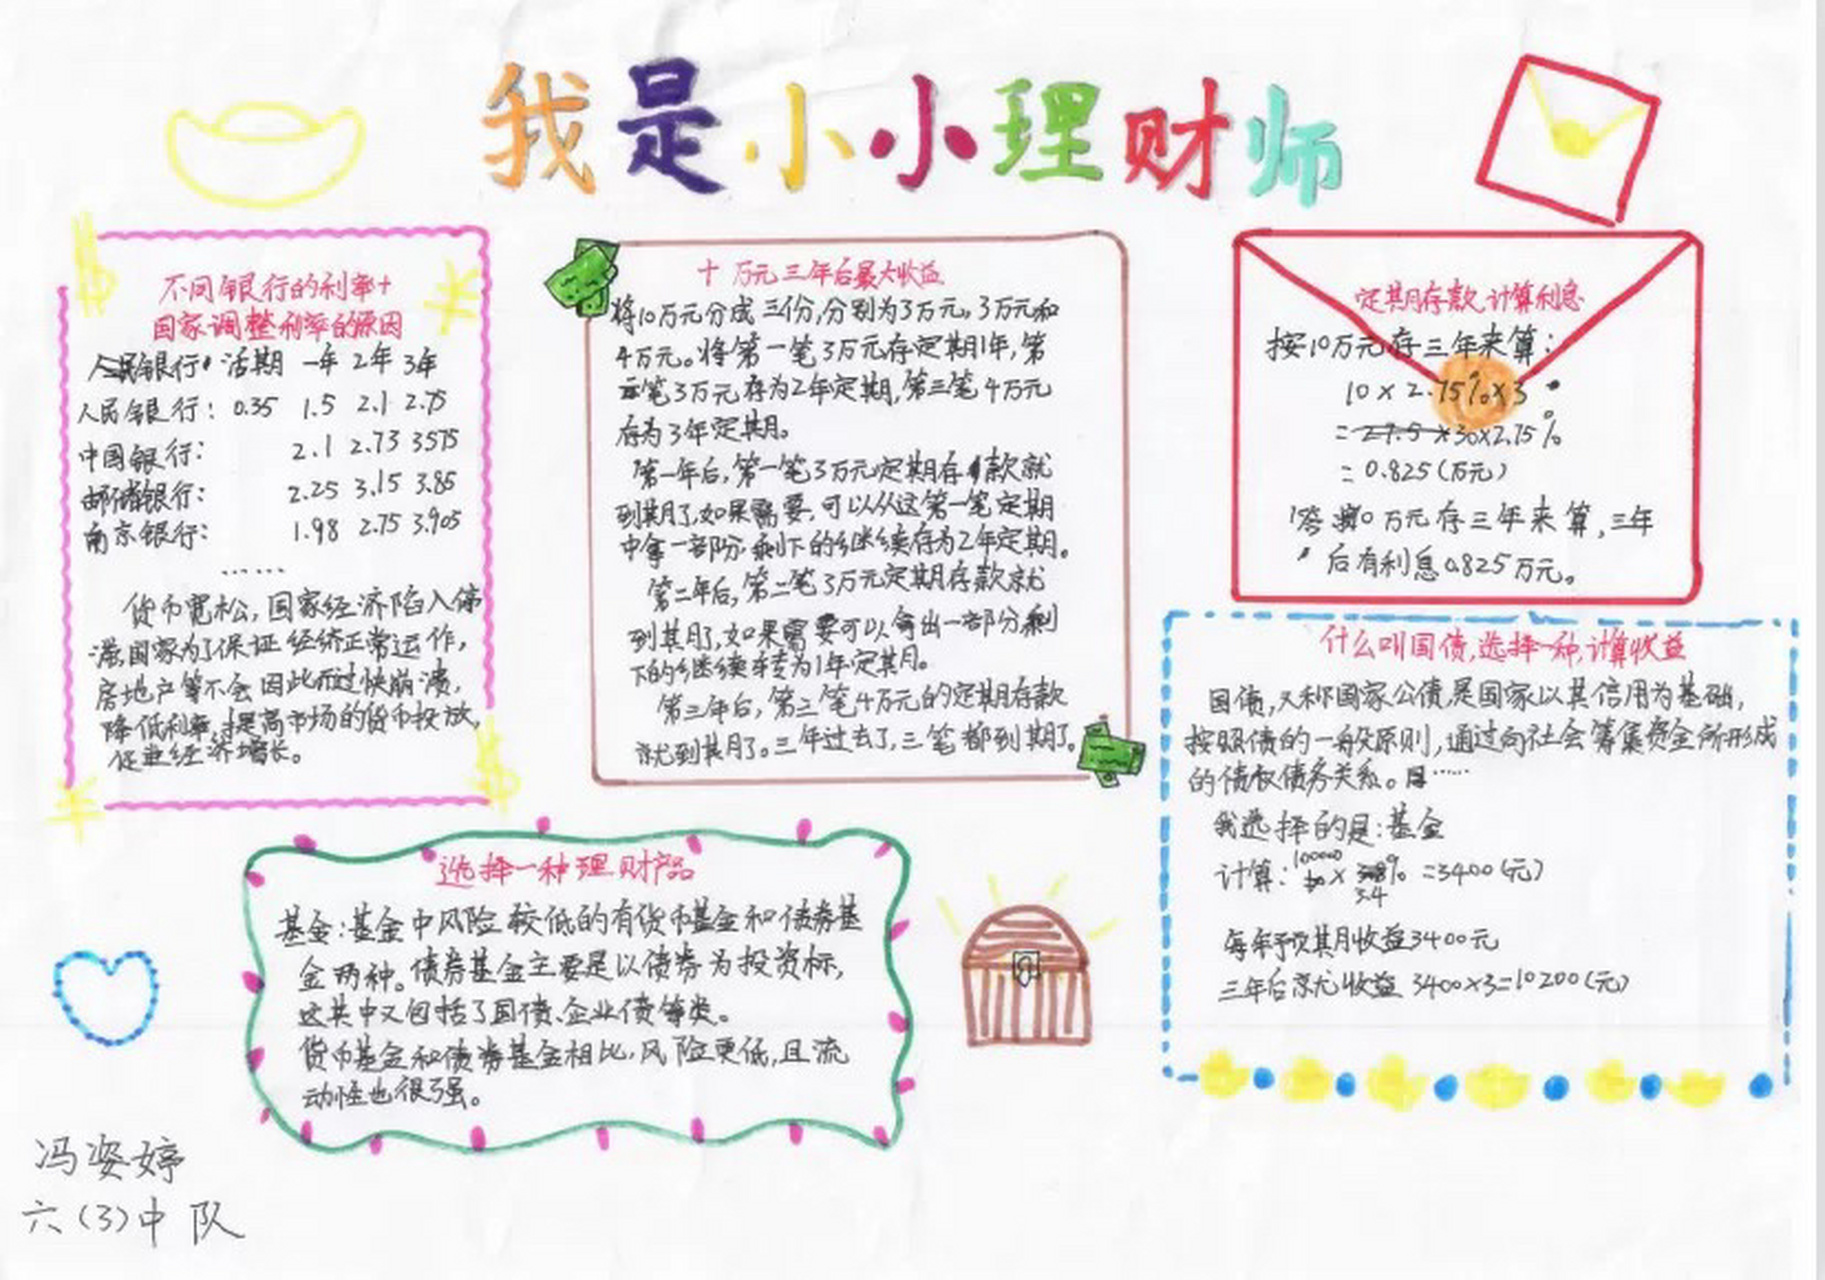 我是小小理财师
不同银行的利率+
国家调整利率的原因
人民银行 活期 一年 2年 3年
人民银行：0.35 1.5 2.1 2.75
中国银行： 2.1 2.73 3.575
邮储银行： 2.25 3.15 3.85
南京银行： 1.98 2.75 3.905
……
货币宽松，国家经济陷入停
滞，国家为了保证经济正常运作，
房地产等不会因此而过快崩溃，
降低利率，提高市场的货币投放，
促进经济增长。
十万元三年后最大收益
将10万元分成三份，分别为3万元，3万元和
4万元。将第一笔3万元存定期1年，第
二笔3万元存为2年定期，第三笔4万元
存为3年定期。
第一年后，第一笔3万元定期存款就
到期了，如果需要，可以从这第一笔定期
中拿一部分，剩下的继续存为2年定期。
第二年后，第二笔3万元定期存款就
到期了，如果需要可以拿出一部分，剩
下的继续转为1年定期。
第三年后，第三笔4万元的定期存款
就到期了。三年过去了，三笔都到期了。
定期存款，计算利息
按10万元存三年来算：
10×2.75%×3
=30×2.75%
=0.825(万元)
答：按10万元存三年来算，三年
后有利息0.825万元。
什么叫国债，选择一种，计算收益
国债，又称国家公债，是国家以其信用为基础，
按照债的一般原则，通过向社会筹集资金所形成
的债权债务关系。……
我选择的是：基金
计算：100000×3.4%=3400(元)
每年预期收益3400元
三年后 收益 3400×3=10200(元)
选择一种理财产品
基金：基金中风险较低的有货币基金和债券基
金两种。债券基金主要是以债券为投资标，
这其中又包括了国债、企业债等类。
货币基金和债券基金相比，风险更低，且流
动性也很强。
冯姿婷
六(3)中队